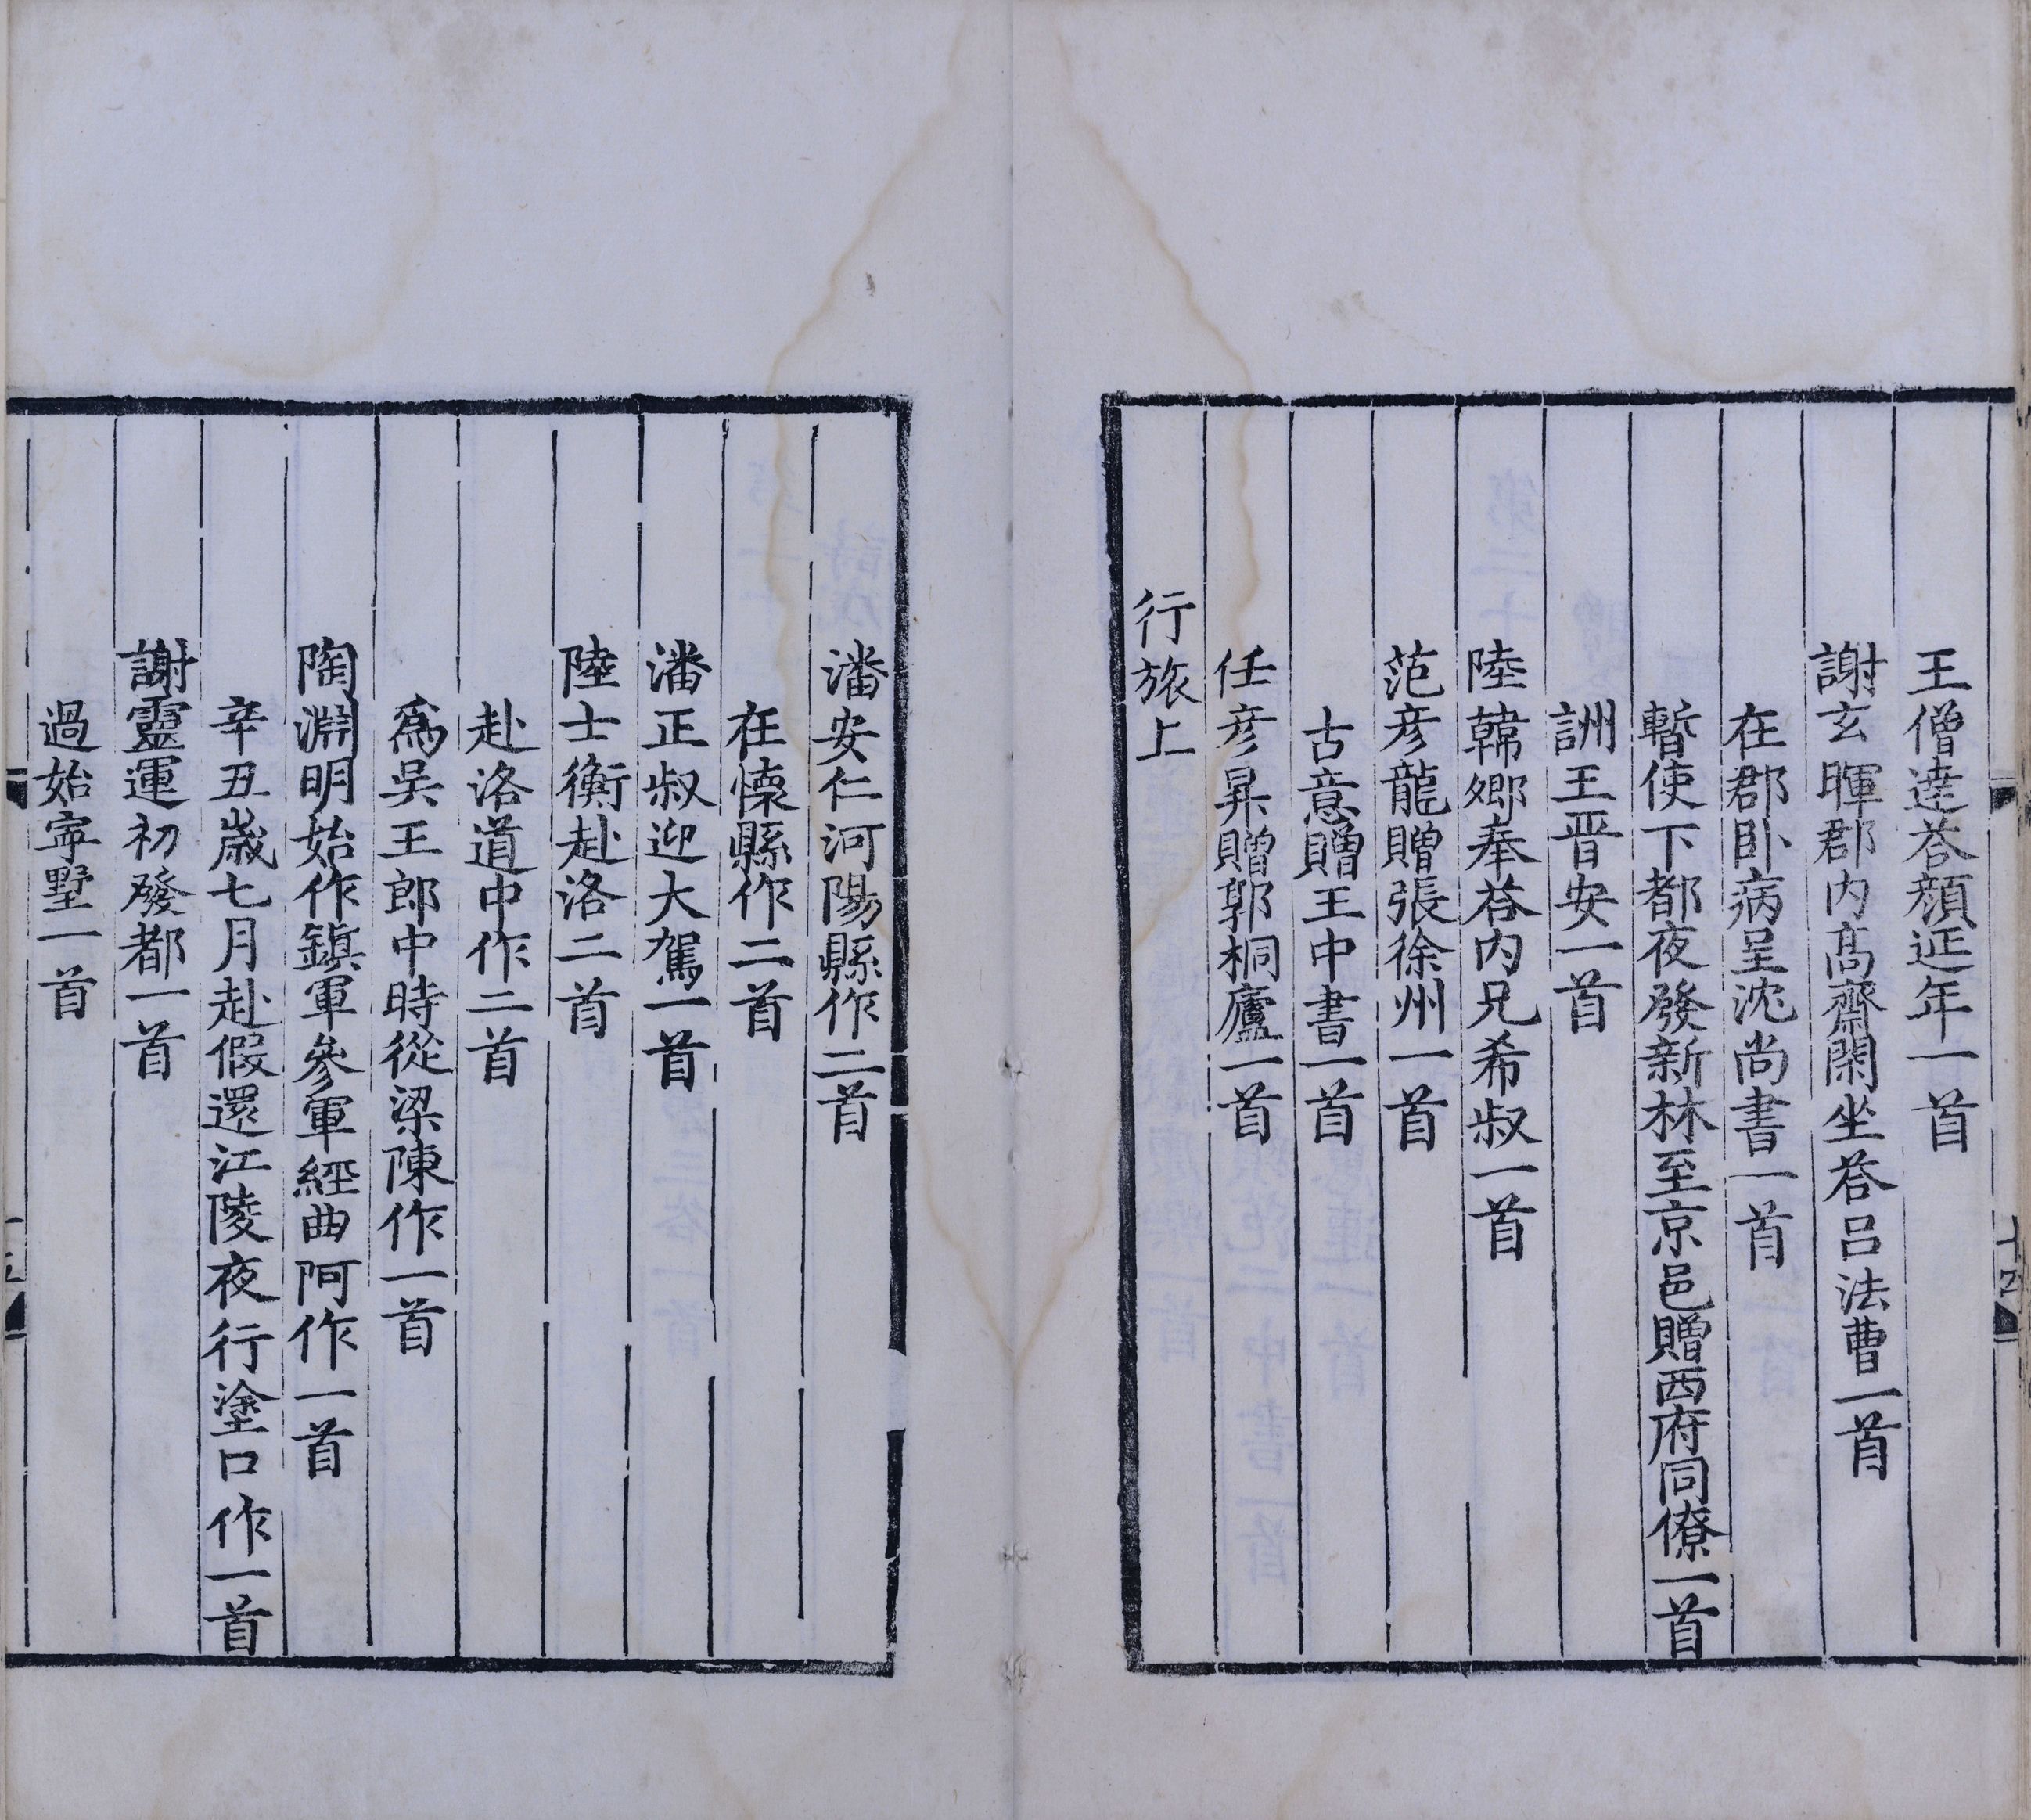 王僧達荅顔延年一首
謝玄暉郡内髙齋閑坐荅呂法曹一首
在郡卧病呈沈尚書一首
暫使下都夜發新林至京邑贈西府同僚一首
詶王晋安一首
陸韓卿奉荅内兄希叔一首
范彦龍贈張徐州一首
古意贈王中書一首
任彦昇贈郭桐廬一首
行旅上
潘安仁河陽縣作二首
在懷縣作二首
潘正叔迎大駕一首
陸士衡赴洛二首
赴洛道中作二首
爲吴王郎中時從梁陳作一首
陶淵明始作鎮軍參軍經曲阿作一首
辛丑歲七月赴假還江陵夜行塗口作一首
謝靈運初發都一首
過始寧墅一首